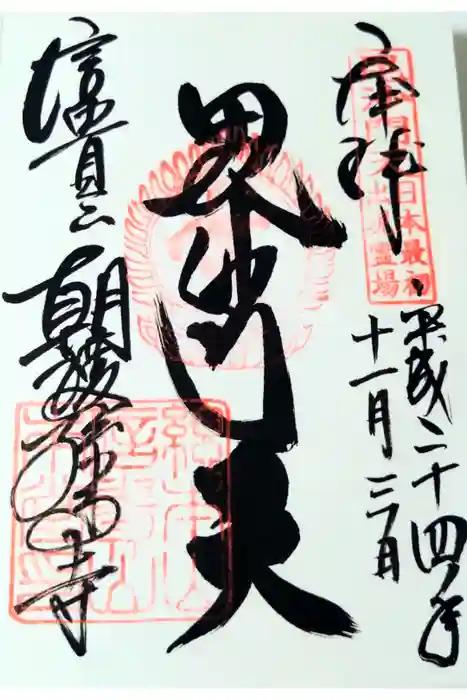 奉拝
日本最初
毘沙門天出現霊場
平成二十四年
十一月三日
毘沙門天
信貴山
朝護孫子寺